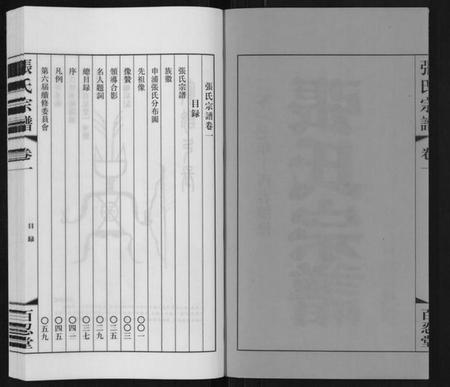 張氏宗譜
卷一
百忍堂
張氏宗譜卷一
目録
張氏宗譜
族徽
申浦張氏分布圖
先祖像 〇〇一
像贊 〇〇三
領導合影 〇二五
名人題詞 〇二九
總目録 〇三七
序 〇四一
凡例 〇四五
第六届續修委員會 〇五九
張氏宗譜
卷一
目録
百忍堂